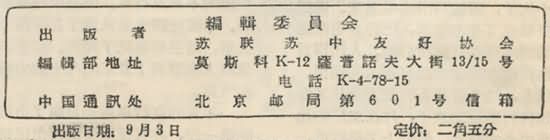 編輯委員会
出版者
苏联苏中友好协会
編輯部地址 莫斯科K-12薩普諾夫大街13/15号
电話 K-4-78-15
中国通訊处 北京邮局第601号信箱
出版日期：9月3日 定价：二角五分